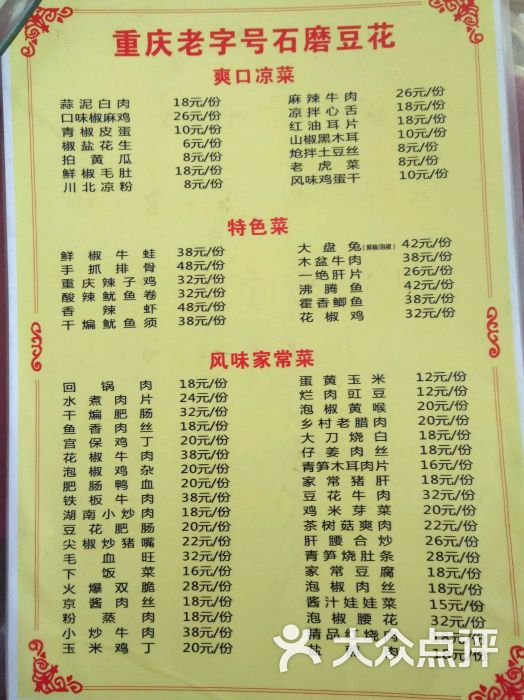 重庆老字号石磨豆花
爽口凉菜
蒜泥白肉 18元/份
口味椒麻鸡 26元/份
青椒皮蛋 10元/份
椒盐花生 6元/份
拍黄瓜 8元/份
鲜椒毛肚 18元/份
川北凉粉 8元/份
麻辣牛肉 26元/份
凉拌心舌 18元/份
红油耳片 18元/份
山椒黑木耳 10元/份
炝拌土豆丝 8元/份
老虎菜 8元/份
风味鸡蛋干 10元/份
特色菜
鲜椒牛蛙 38元/份
手抓排骨 48元/份
重庆辣子鸡 32元/份
酸辣鱿鱼卷 32元/份
香辣虾 48元/份
干煸鱿鱼须 38元/份
大盘兔(鲜椒/泡椒) 42元/份
木盆牛肉 38元/份
一绝肝片 26元/份
沸腾鱼 42元/份
霍香鲫鱼 38元/份
花椒鸡 32元/份
风味家常菜
回锅肉 18元/份
水煮肉片 24元/份
干煸肥肠 32元/份
鱼香肉丝 18元/份
宫保鸡丁 20元/份
花椒牛肉 38元/份
泡椒鸡杂 20元/份
肥肠鸭血 20元/份
铁板牛肉 38元/份
湖南小炒肉 18元/份
豆花肥肠 20元/份
尖椒炒猪嘴 22元/份
毛血旺 32元/份
下饭菜 16元/份
火爆双脆 28元/份
京酱肉丝 18元/份
粉蒸肉 18元/份
小炒牛肉 38元/份
玉米鸡丁 20元/份
蛋黄玉米 12元/份
烂肉豇豆 12元/份
泡椒黄喉 20元/份
乡村老腊肉 20元/份
大刀烧白 18元/份
仔姜肉丝 18元/份
青笋木耳肉片 16元/份
家常猪肝 18元/份
豆花牛肉 32元/份
鸡米芽菜 20元/份
茶树菇爽肉 22元/份
肝腰合炒 26元/份
青笋烧肚条 28元/份
家常豆腐 18元/份
泡椒肉丝 18元/份
酱汁娃娃菜 15元/份
泡椒腰花 32元/份
精品红烧肉 18元/份
盐 肉 18元/份
大众点评